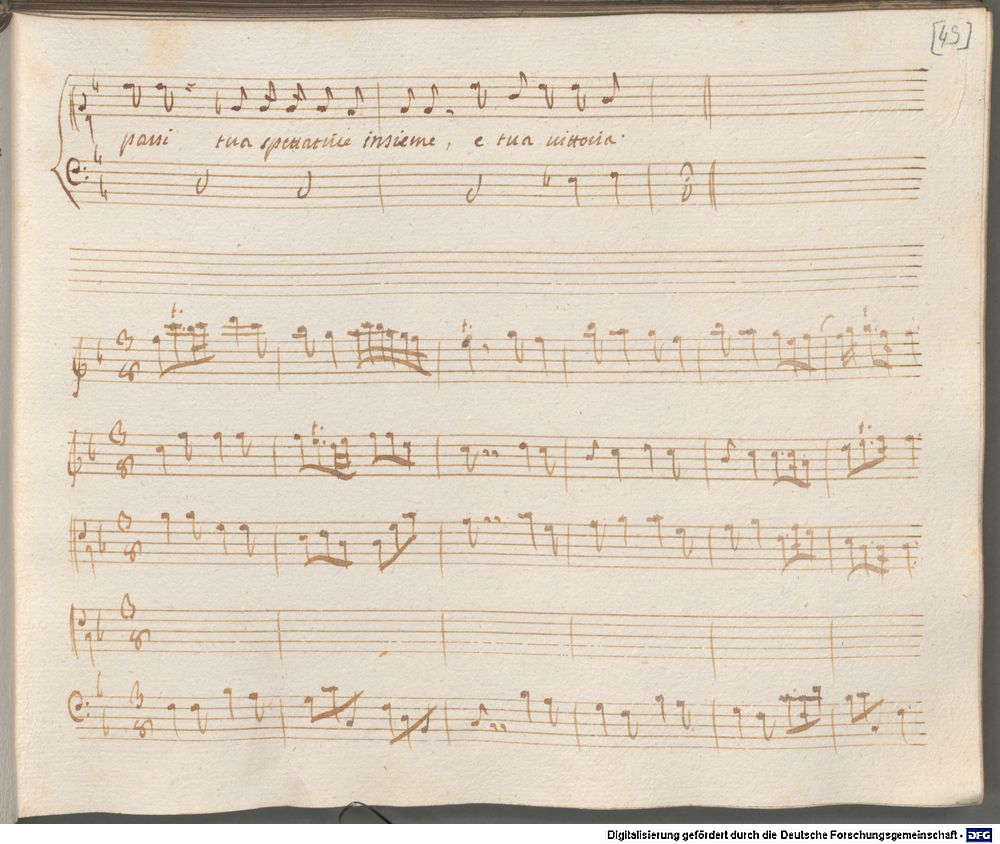 [49]
passi tua spettatrice insieme, e tua vittoria.
Digitalisierung gefördert durch die Deutsche Forschungsgemeinschaft - DFG